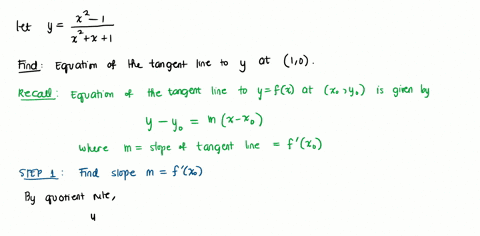 let y = (x² - 1)/(x² + x + 1)
Find: Equation of the tangent line to y at (1,0).
Recall: Equation of the tangent line to y = f(x) at (x₀, y₀) is given by
y - y₀ = m(x - x₀)
where m = slope of tangent line = f'(x₀)
STEP 1: Find slope m = f'(x₀)
By quotient rule,
y